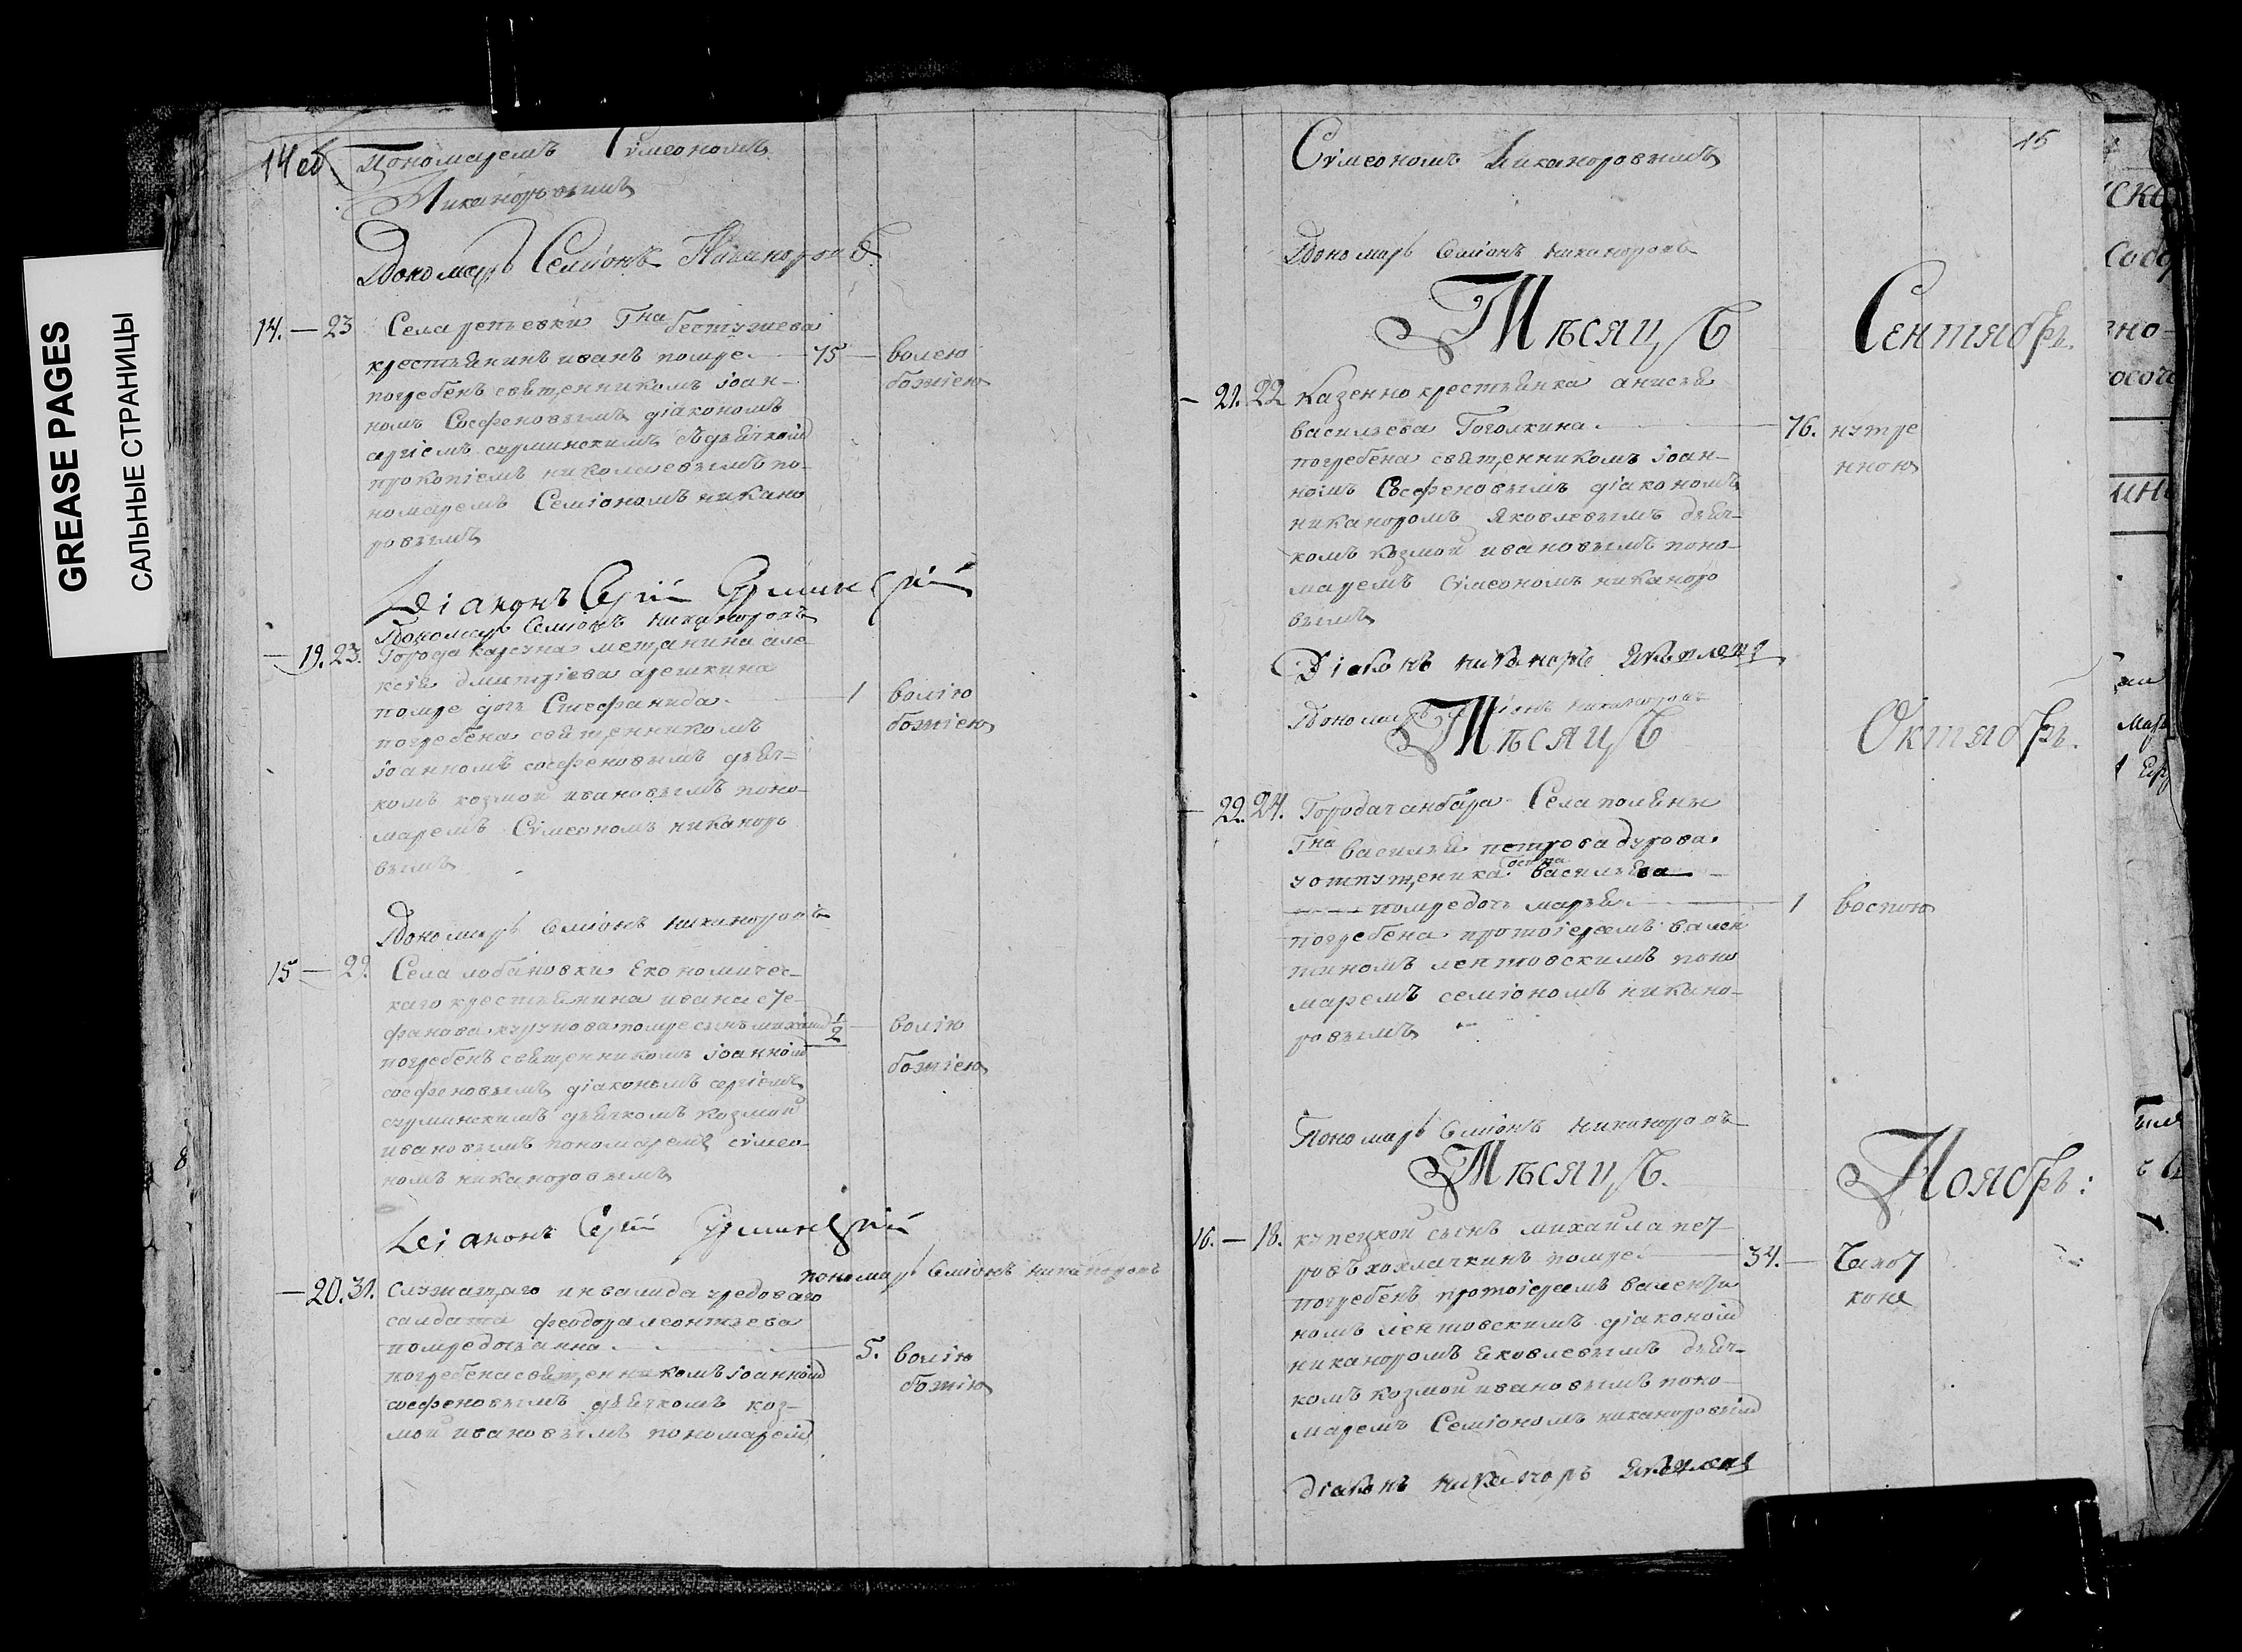 GREASE PAGES
САЛЬНЫЕ СТРАНИЦЫ
14 об
Пономаремъ Симеономъ
Никаноровымъ
Пономарь Семионъ Никаноровъ
14. — 23 Села репьевки Гна бестужева
крестьянинъ иванъ помре — 75 — волею
погребенъ священникомъ іоан- божіею
номъ Сосфеновымъ діакономъ
сергіемъ сурминскимъ дьячком
прокопіемъ николаевымъ по-
номаремъ Семіономъ никано
ровымъ
Діаконъ Сергій Сурминскій
Пономарь Семіонъ Никаноровъ
— 19. 23. Города карсуна мещанина але-
ксія дмитріева арешкина
помре дочь Стефанида — 1 волію
погребена священникомъ божіею
іоанномъ сосфеновымъ дьяч-
комъ козмой ивановымъ поно-
маремъ Симеономъ никаноро
вымъ
Пономарь Семіонъ Никаноровъ
15 — 29. Села лобановки Економичес-
каго крестьянина ивана сте-
фанова помре сынъ михаил 1/2 — волію
погребенъ священникомъ іоанном божіею
сосфеновымъ діакономъ сергіемъ
сурминскимъ дьячкомъ козмой
ивановымъ пономаремъ симео-
номъ никаноровымъ
Діаконъ Сергій Сурминскій
пономарь Семіонъ никаноровъ
— 20. 31. Служащаго инвалида рядоваго
салдата феодора леонтьева
помре дочь анна — 5. волію
погребена священникомъ іоанном божію
сосфеновымъ дьячкомъ коз-
мой ивановымъ пономарем
15
Симеономъ Никаноровымъ
Пономарь Семіонъ никаноровъ
Мѣсяцъ Сентябрь.
— 21. 22 Казенно крестьянка анисья
васильева Гоголкина — 76. нутре
погребена священникомъ іоан- нною
номъ Сосфеновымъ діакономъ
никаноромъ Яковлевымъ дьяч-
комъ козмой ивановымъ поно-
маремъ Симеономъ никаноро
вымъ
Діаконъ Никаноръ Яковлевъ
Пономарь Семіонъ никаноровъ
Мѣсяцъ Октябрь.
— 22. 24. Города Села
Гна василья петрова дурова
уотпущеника васильева
помре дочь марья — 1 воспою
погребена протоіереемъ вален
тиномъ лентовскимъ поно
маремъ семіономъ никано-
ровымъ
Пономарь Семіонъ Никаноровъ
Мѣсяцъ. Ноябрь:
16. — 18. купецкой сынъ михаила пет-
ровъ хохлачкинъ помре — 34. — Чехот
погребенъ протоіереемъ валенти коня
номъ лентовскимъ діаконом
никаноромъ яковлевымъ дьяч-
комъ козмой ивановымъ поно-
маремъ Семіономъ никаноровым
Діаконъ Никаноръ Яковлевъ